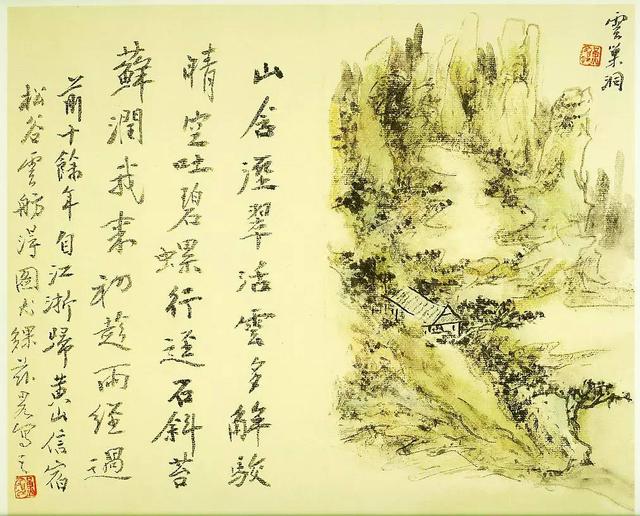 雲巢洞
山含溼翠活雲多解駮
晴空吐碧螺行逕石斜苔
蘚潤我來初趁雨經過
前十餘年自江浙歸黃山信宿
松谷雲舫淂圖尤夥茲寫之